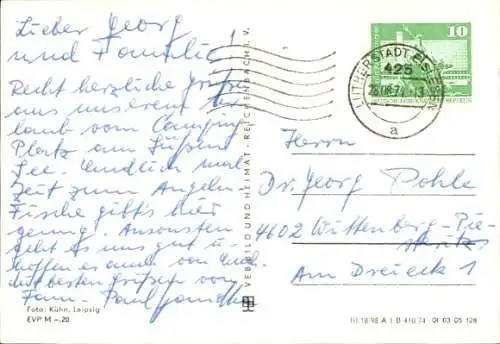 Lieber Georg
und Familie!
Recht herzliche Grüße
aus unserem Ur-
laub vom Camping-
Platz am Süßen
See. Endlich mal
Zeit zum Angeln.
Fische gibt's hier
genug. Ansonsten
geht es uns gut u.
hoffen es auch von Euch.
Mit besten Grüßen von
Fam.
Foto: Kühn, Leipzig
EVP M –.20
VEB BILD UND HEIMAT · REICHENBACH I. V.
III/18/98 A 1 B 410/74 01 03 05 128
10
LUTHERSTADT EISLEBEN
425
a
Herrn
Dr. Georg Pohle
4602 Wittenberg-Pie-
steritz
Am Dreieck 1